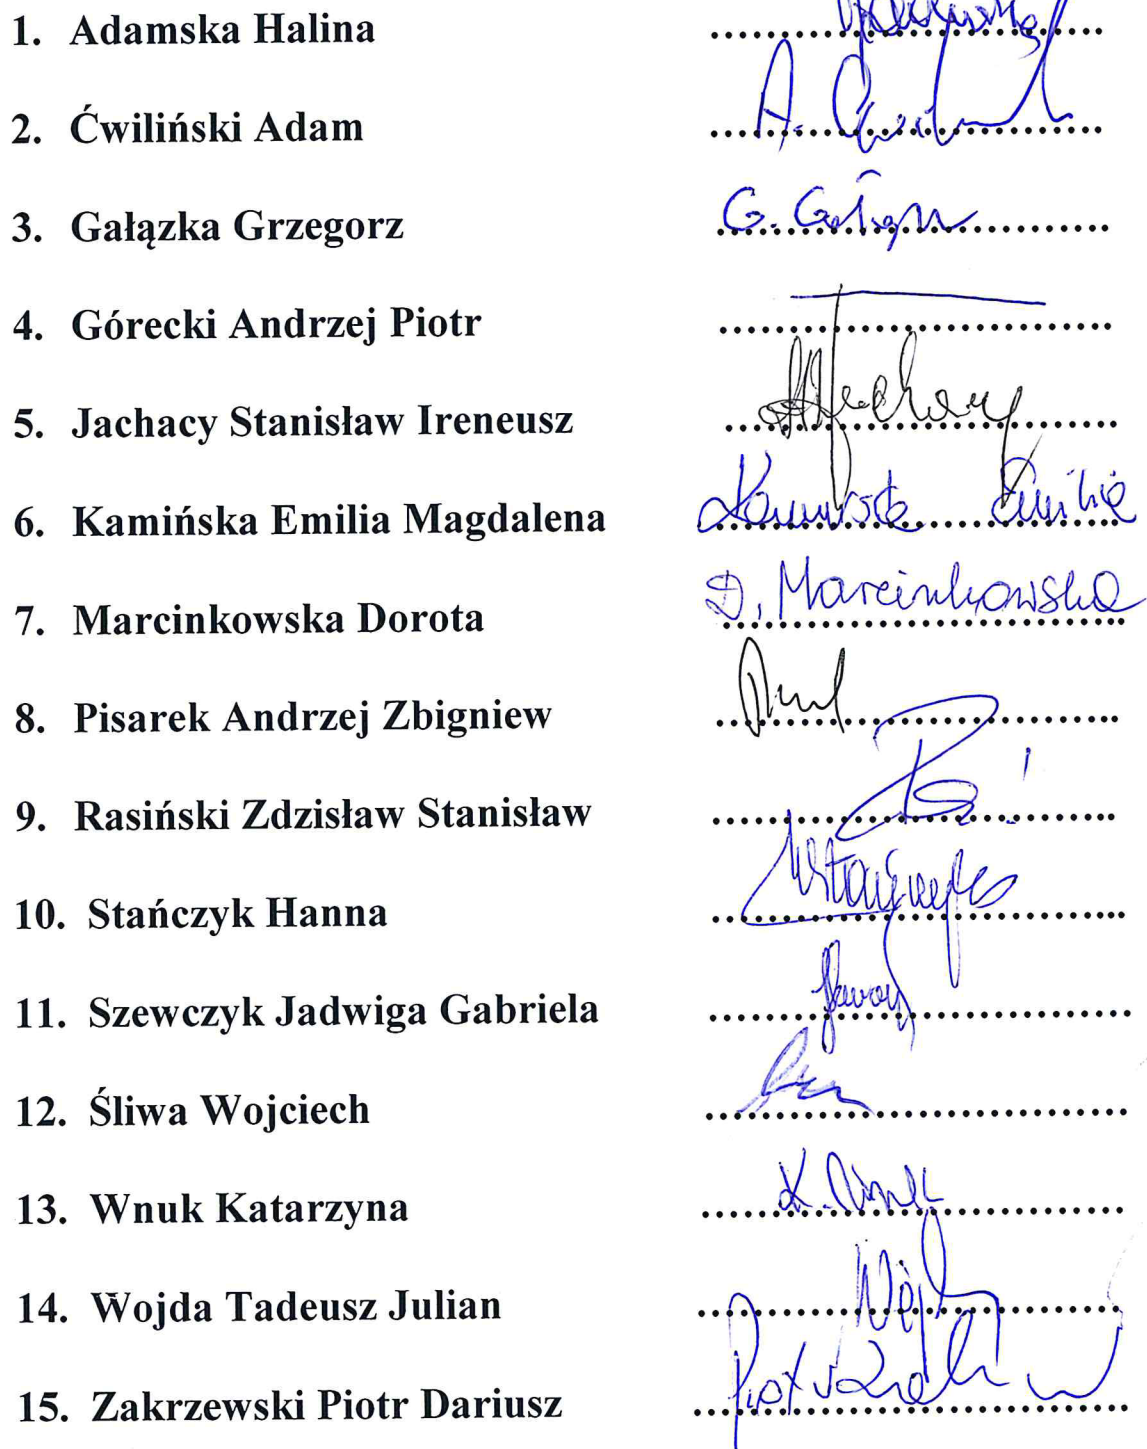 1. Adamska Halina
2. Ćwiliński Adam
3. Gałązka Grzegorz G. Gałązka
4. Górecki Andrzej Piotr
5. Jachacy Stanisław Ireneusz Jachacy
6. Kamińska Emilia Magdalena Kamińska Emilia
7. Marcinkowska Dorota D. Marcinkowska
8. Pisarek Andrzej Zbigniew
9. Rasiński Zdzisław Stanisław
10. Stańczyk Hanna
11. Szewczyk Jadwiga Gabriela
12. Śliwa Wojciech
13. Wnuk Katarzyna K. Wnuk
14. Wojda Tadeusz Julian
15. Zakrzewski Piotr Dariusz Piotr